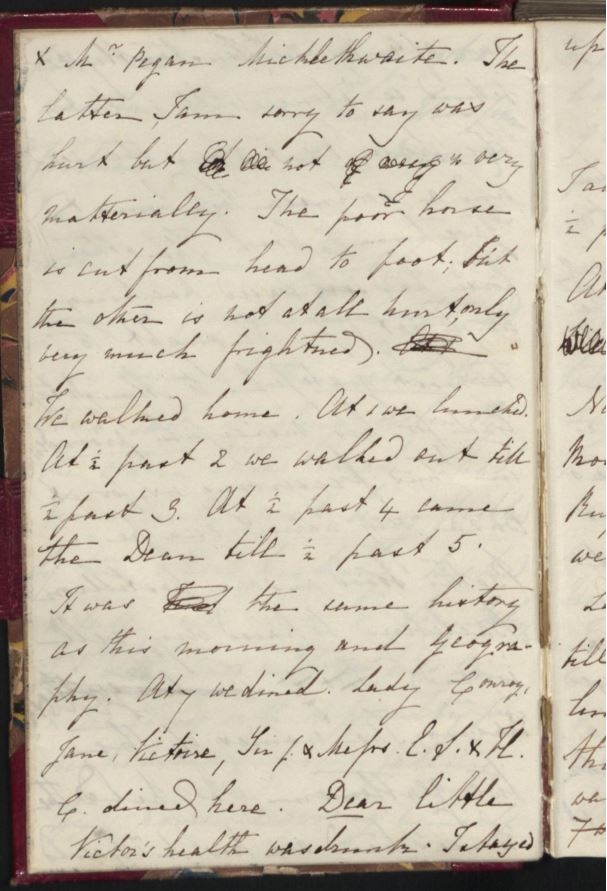 & Mr Pegan Micklethwaite. The
latter, I am sorry to say was
hurt but not very
matterially. The poor horse
is cut from head to foot; but
the other is not at all hurt, only
very much frightned).
We walked home. At 1 we lunched.
At ½ past 2 we walked out till
½ past 3. At ½ past 4 came
the Dean till ½ past 5.
It was the same history
as this morning and Geogra-
phy. At 7 we dined. Lady Conroy,
Jane, Victoire, Sir J. & Messrs. E. S. & H.
C. dined here. Dear little
Victor's health was drunk. I stayed
up
I a
½ p
At
N
Mo
we
till
th
wa